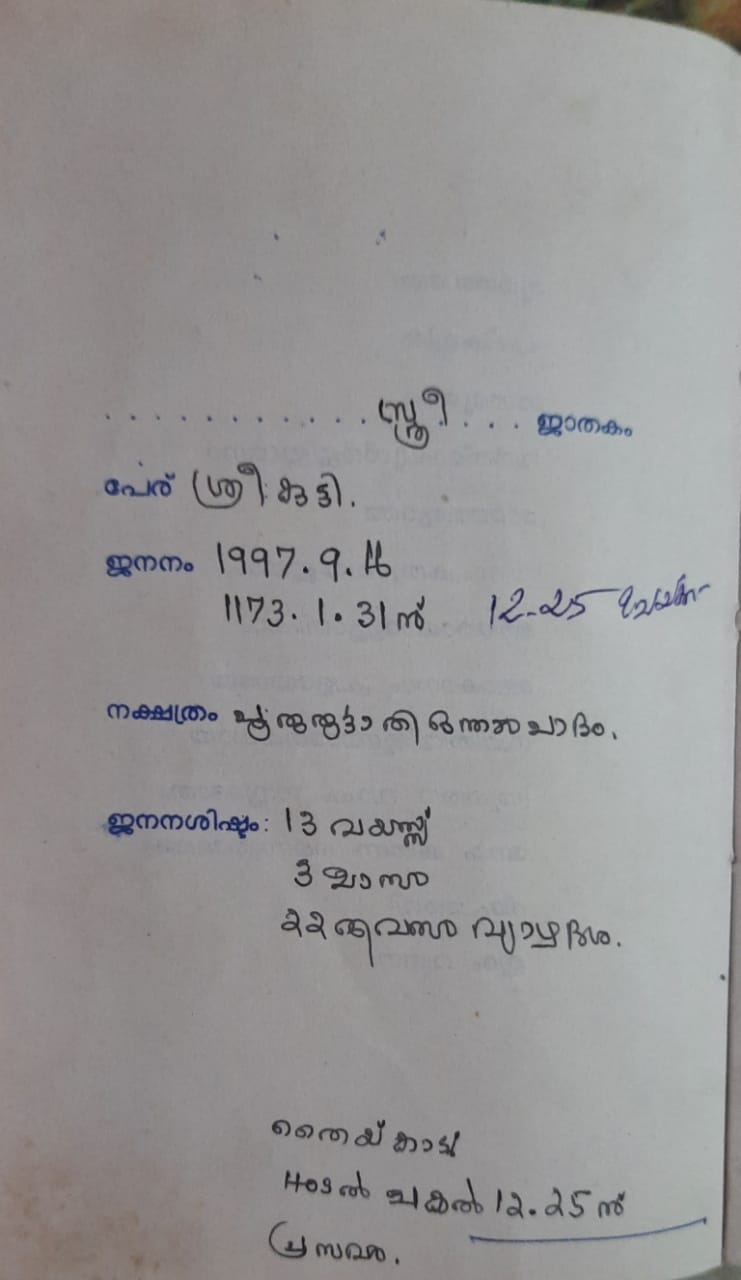 ............സ്ത്രീ.... ജാതകം
പേര് ശ്രീകുട്ടി.
ജനനം 1997.9.16
1173.1.31ന് 12-25
നക്ഷത്രം പൂരുരുട്ടാതി ഒന്നാം പാദം.
ജനനശിഷ്ടം: 13 വയസ്സ്
3 മാസം
22 ദിവസം വ്യാഴദശ.
തൈയ്കാട്
പകൽ 12.25ന്
പ്രസവം.